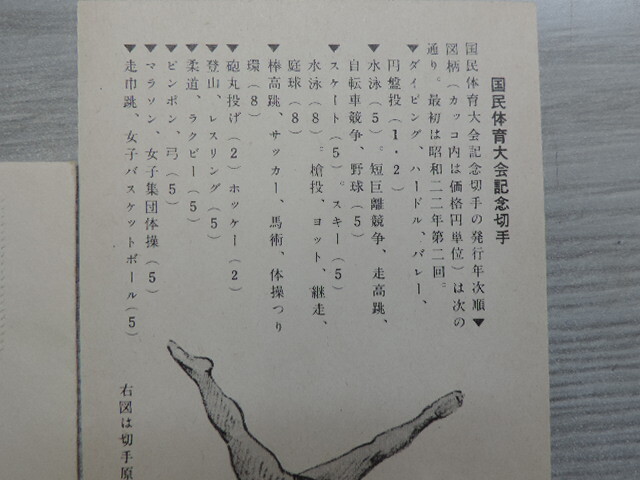 国民体育大会記念切手
国民体育大会記念切手の発行年次順▼
図柄(カッコ内は価格円単位)は次の
通り。最初は昭和二二年第二回。
▼ダイビング、ハードル、バレー、
円盤投(1・2)
▼水泳(5)。短巨離競争、走高跳、
自転車競争、野球(5)
▼スケート(5)。スキー(5)
水泳(8)。槍投、ヨット、継走、
庭球(8)
▼棒高跳、サッカー、馬術、体操つり
環(8)
▼砲丸投げ(2)ホッケー(2)
▼登山、レスリング(5)
▼柔道、ラクビー(5)
▼ピンポン、弓(5)
▼マラソン、女子集団体操(5)
▼走巾跳、女子バスケットボール(5)
右図は切手原